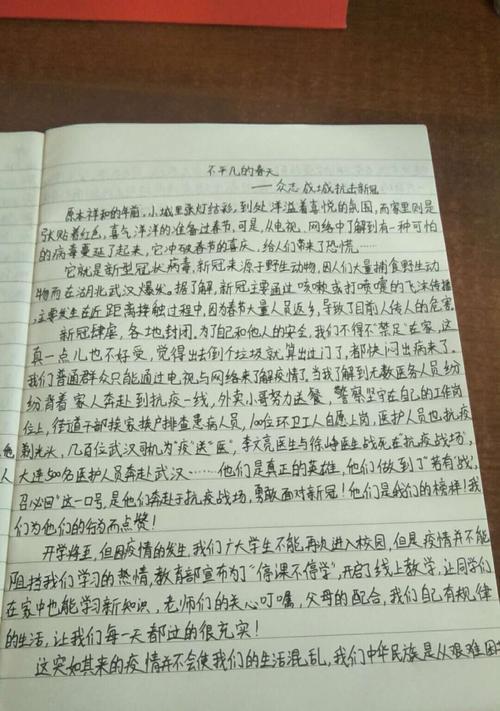 不平凡的春天
——众志成城抗击新冠
原本祥和的年前,小城里张灯结彩,到处洋溢着喜悦的氛围,而家里则是
张贴着红色,喜气洋洋的准备过春节,可是,从电视、网络中了解到有一种可怕
的病毒蔓延了起来,它冲破春节的喜庆,给人们带来了恐慌……
它就是新型冠状病毒,新冠来源于野生动物,因人们大量捕食野生动
物而在湖北武汉爆发。据了解,新冠主要通过咳嗽或打喷嚏的飞沫传播,
主要发生在近距离接触过程中,因为春节大量人员返乡,导致了目前人传人的危害。
新冠肆虐,各地封闭。为了自己和他人的安全,我们不得不“禁足”在家,这
真一点儿也不好受,觉得出去倒个垃圾就算出过门了,都快闷出病来了。
我们普通群众只能通过电视与网络来了解疫情了。当我了解到无数医务人员纷
纷背着家人奔赴到抗疫一线,外卖小哥努力送餐,警察坚守在自己的工作岗
位上,街道干部挨家挨户排查患病人员,100位环卫工人自愿上岗,医护人员也抗疫
剃光头,几百位武汉司机为“疫”送“医”,李文亮医生与徐峰医生战死在“抗疫战场”,
大连500名医护人员奔赴武汉……他们是真正的英雄,他们做到了“若有战,
召必回”这一口号,是他们奔赴于抗疫战场,勇敢面对新冠!他们是我们的榜样!我
们为他们的行为而点赞!
开学将至,但因疫情的发生,我们广大学生不能再次进入校园,但是疫情并不能
阻挡我们学习的热情,教育部宣布为了“停课不停学”,开启了线上教学,让同学们
在家中也能学习新知识,老师们的关心叮嘱,父母的配合,我们自己有规律
的生活,让我们每一天都过的很充实!
这突如其来的疫情并不会使我们的生活混乱,我们中华民族是从艰难困
人